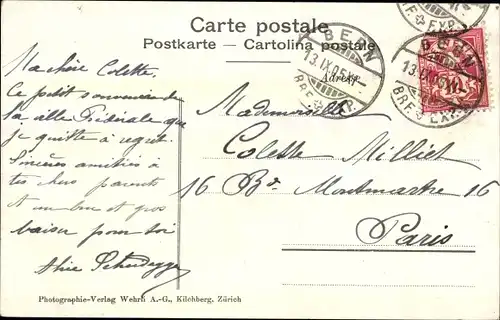 Carte postale
Postkarte — Cartolina postale
Adresse
BERN
13.IX.05.
BRF. EXP.
BERN
13.IX.05.
BRF. EXP.
EXP.
10
Ma chère Colette,
Ce petit souvenir de
la ville Fédérale que
je quitte à regret.
Sincères amitiés à
tes chers parents
et un bon et gros
baiser pour toi
Alice
Mademoiselle
Colette Milliet
16 Bd. Montmartre 16
Paris
Photographie-Verlag Wehrli A.-G., Kilchberg, Zürich